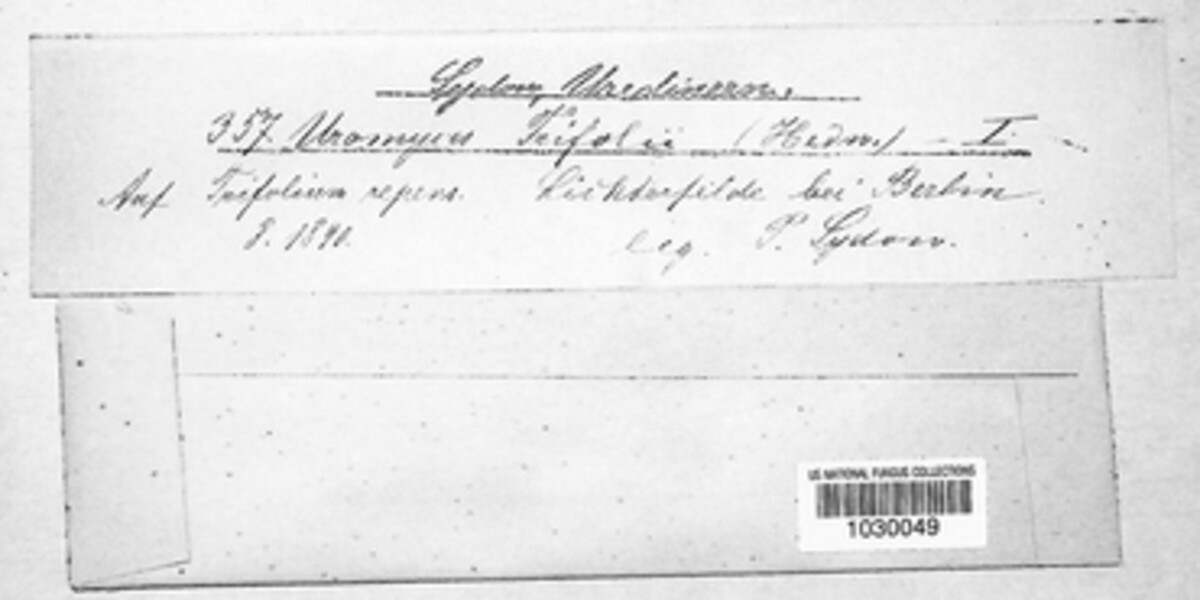 Sydow, Uredineen.
357. Uromyces Trifolii (Hedw.) – I.
Auf Trifolium repens. Lichterfelde bei Berlin.
8. 1890.
leg. P. Sydow.
US NATIONAL FUNGUS COLLECTIONS
1030049